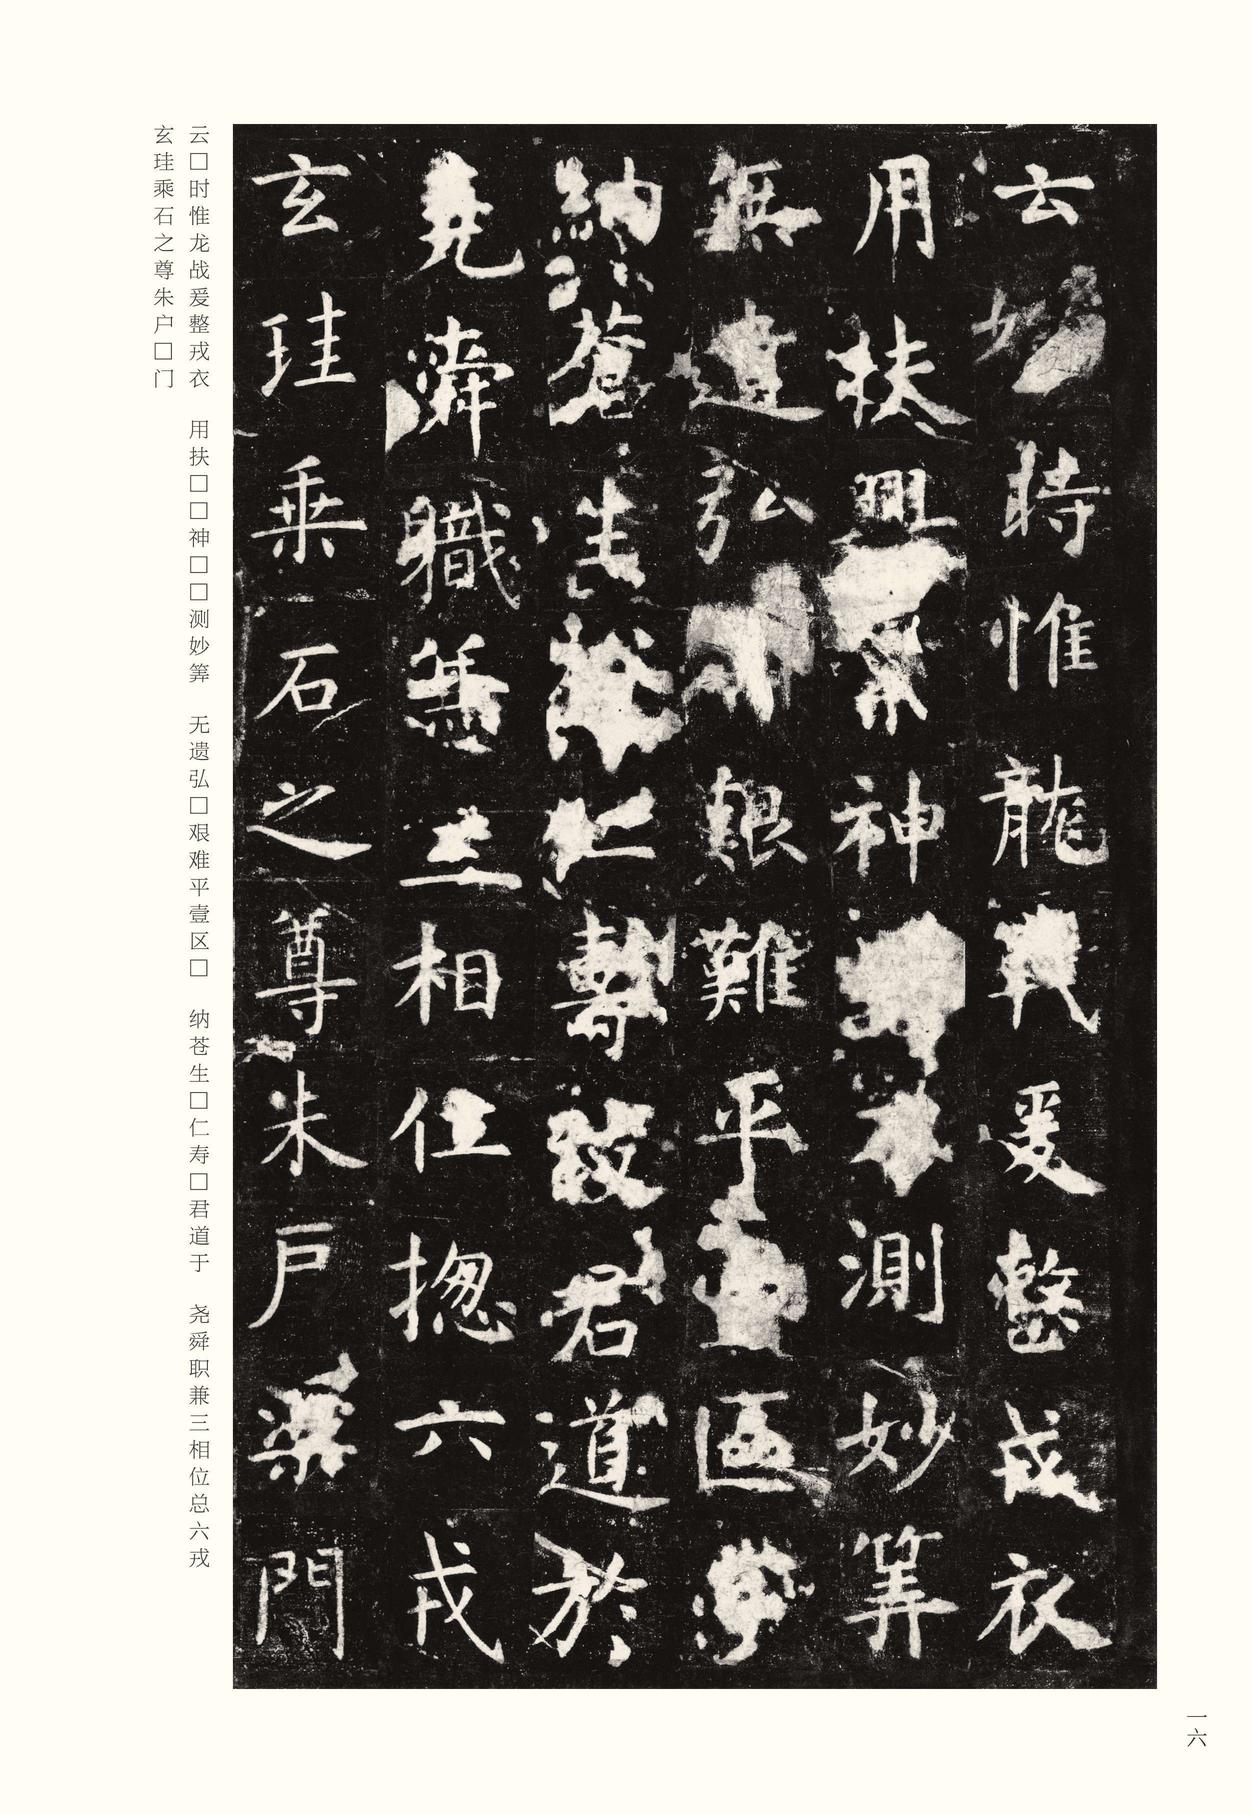 云□時惟龍戰爰整戎衣
用扶興□神□□測妙筭
無遺弘□艱難平壹區□
納蒼生□仁壽□君道於
堯舜職兼三相位揔六戎
玄珪乘石之尊朱戶□門
云□时惟龙战爰整戎衣　用扶□□神□□测妙筭　无遗弘□艰难平壹区□　纳苍生□仁寿□君道于　尧舜职兼三相位总六戎
玄珪乘石之尊朱户□门
一六